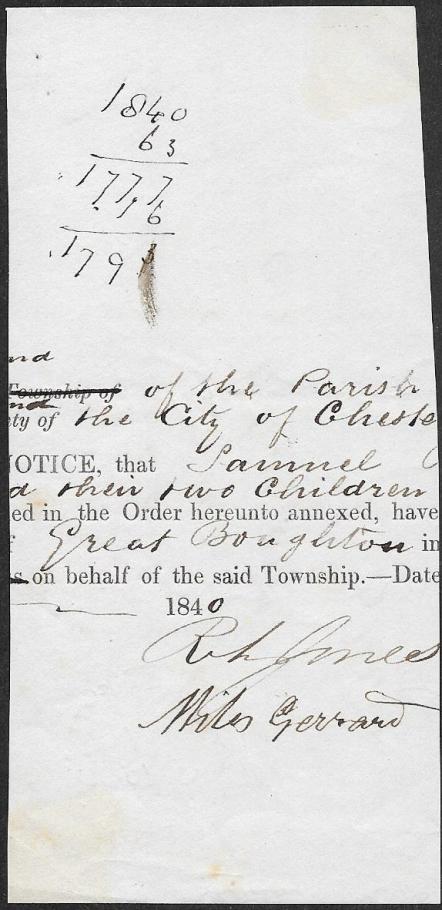 1840
63
1777
16
179
and
Township of of the Parish
and
ty of the City of Cheste
NOTICE, that Samuel
d their two Children
ed in the Order hereunto annexed, have
f Great Boughton in
s on behalf of the said Township.—Date
1840
Miles Gerrard